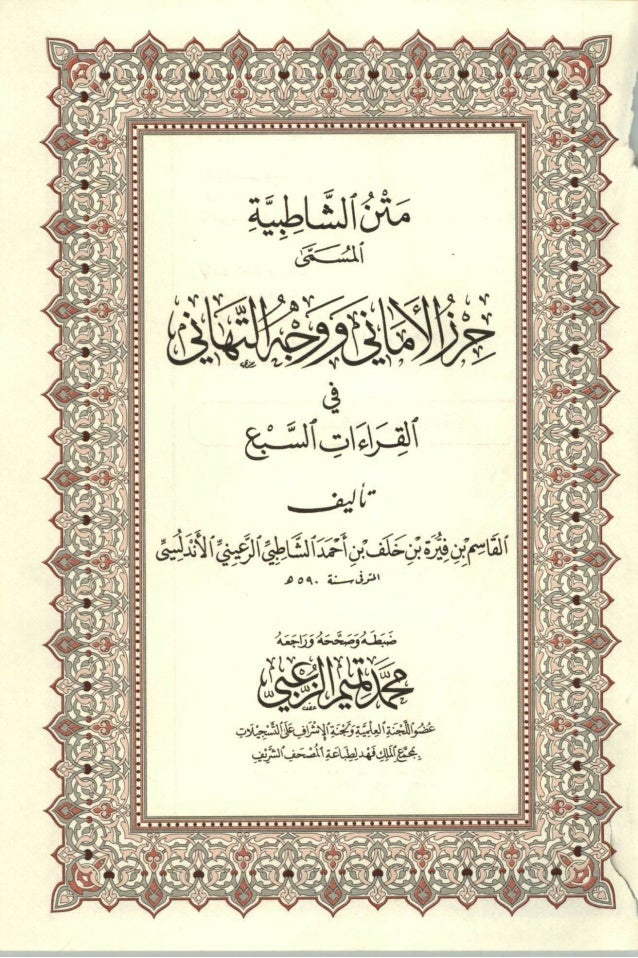 مَتْنُ الشَّاطِبِيَّةِ
المُسَمَّى
حِرْزُ الأَمَانِي وَوَجْهُ التَّهَانِي
في
القِرَاءَاتِ السَّبْعِ
تأليف
القَاسِمِ بْنِ فِيرُّة بْنِ خَلَفِ بْنِ أَحْمَدَ الشَّاطِبِيِّ الرُّعَيْنِيِّ الأَنْدَلُسِيِّ
المتوفى سنة ٥٩٠ ه
ضَبَطَهُ وَصَحَّحَهُ وَرَاجَعَهُ
محمد تميم الزعبي
عُضْوُ اللَّجْنَةِ العِلْمِيَّةِ وَلَجْنَةِ الإِشْرَافِ عَلَى التَّسْجِيلَاتِ
بِمُجَمَّعِ المَلِكِ فَهْد لِطِبَاعَةِ المُصْحَفِ الشَّرِيفِ